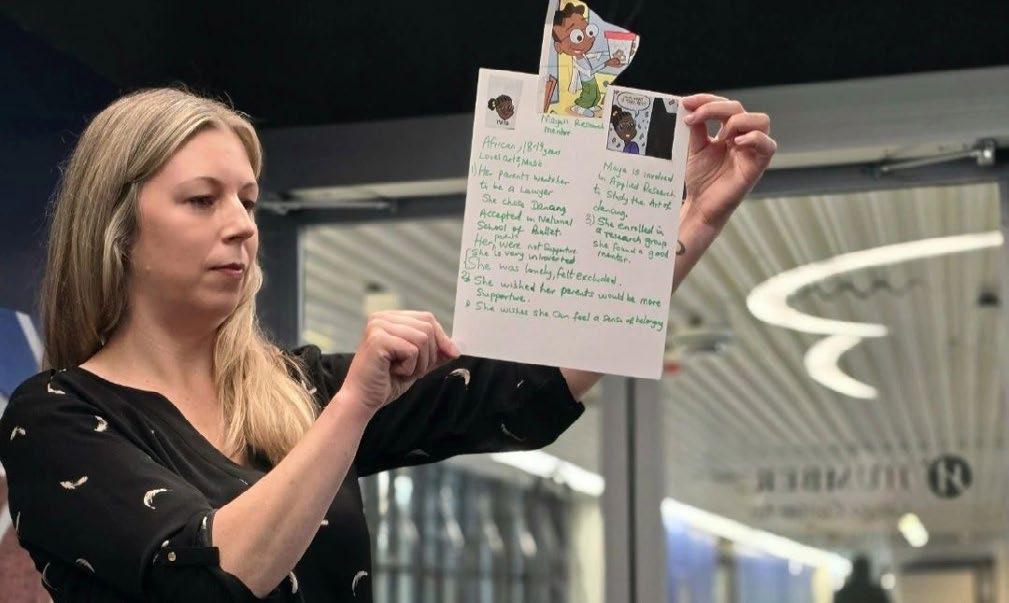 Maya
Maya's Research
mentor
African, 18-19 years
Loves art & Music
1) Her parents wants her
to be a Lawyer
She chose Dancing
Accepted in National
School of Ballet.
Her parents were not supportive
She is very introverted
She was lonely, felt excluded.
She wished her parents would be more
Supportive.
She wishes she can feel a sense of belongy
Maya is involved
in Applied Research
to Study the Art of
dancing.
3) She enrolled in
a research group
she found a good
mentor.
HUMBER